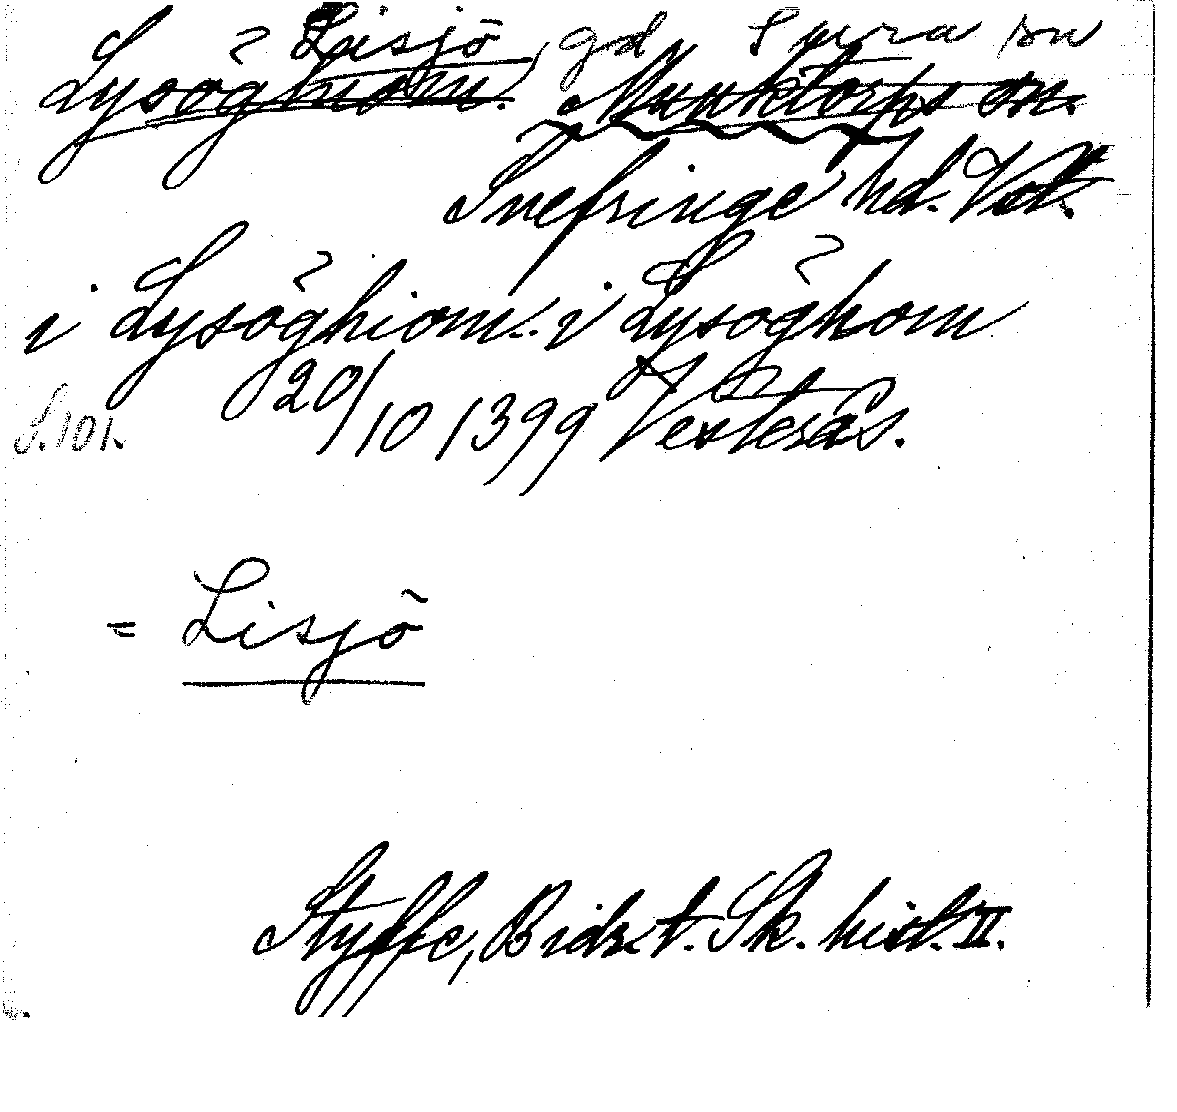 Lisjö, gd, Sura sn
Lysöghiom. Munktorps sn.
Snefringe hd. Vstl.
i Lysöghiom. i Lysöghom
S. 101. 20/10 1399 Vesterås.
= Lisjö
Styffe, Bidr. t. Sk. hist. II.